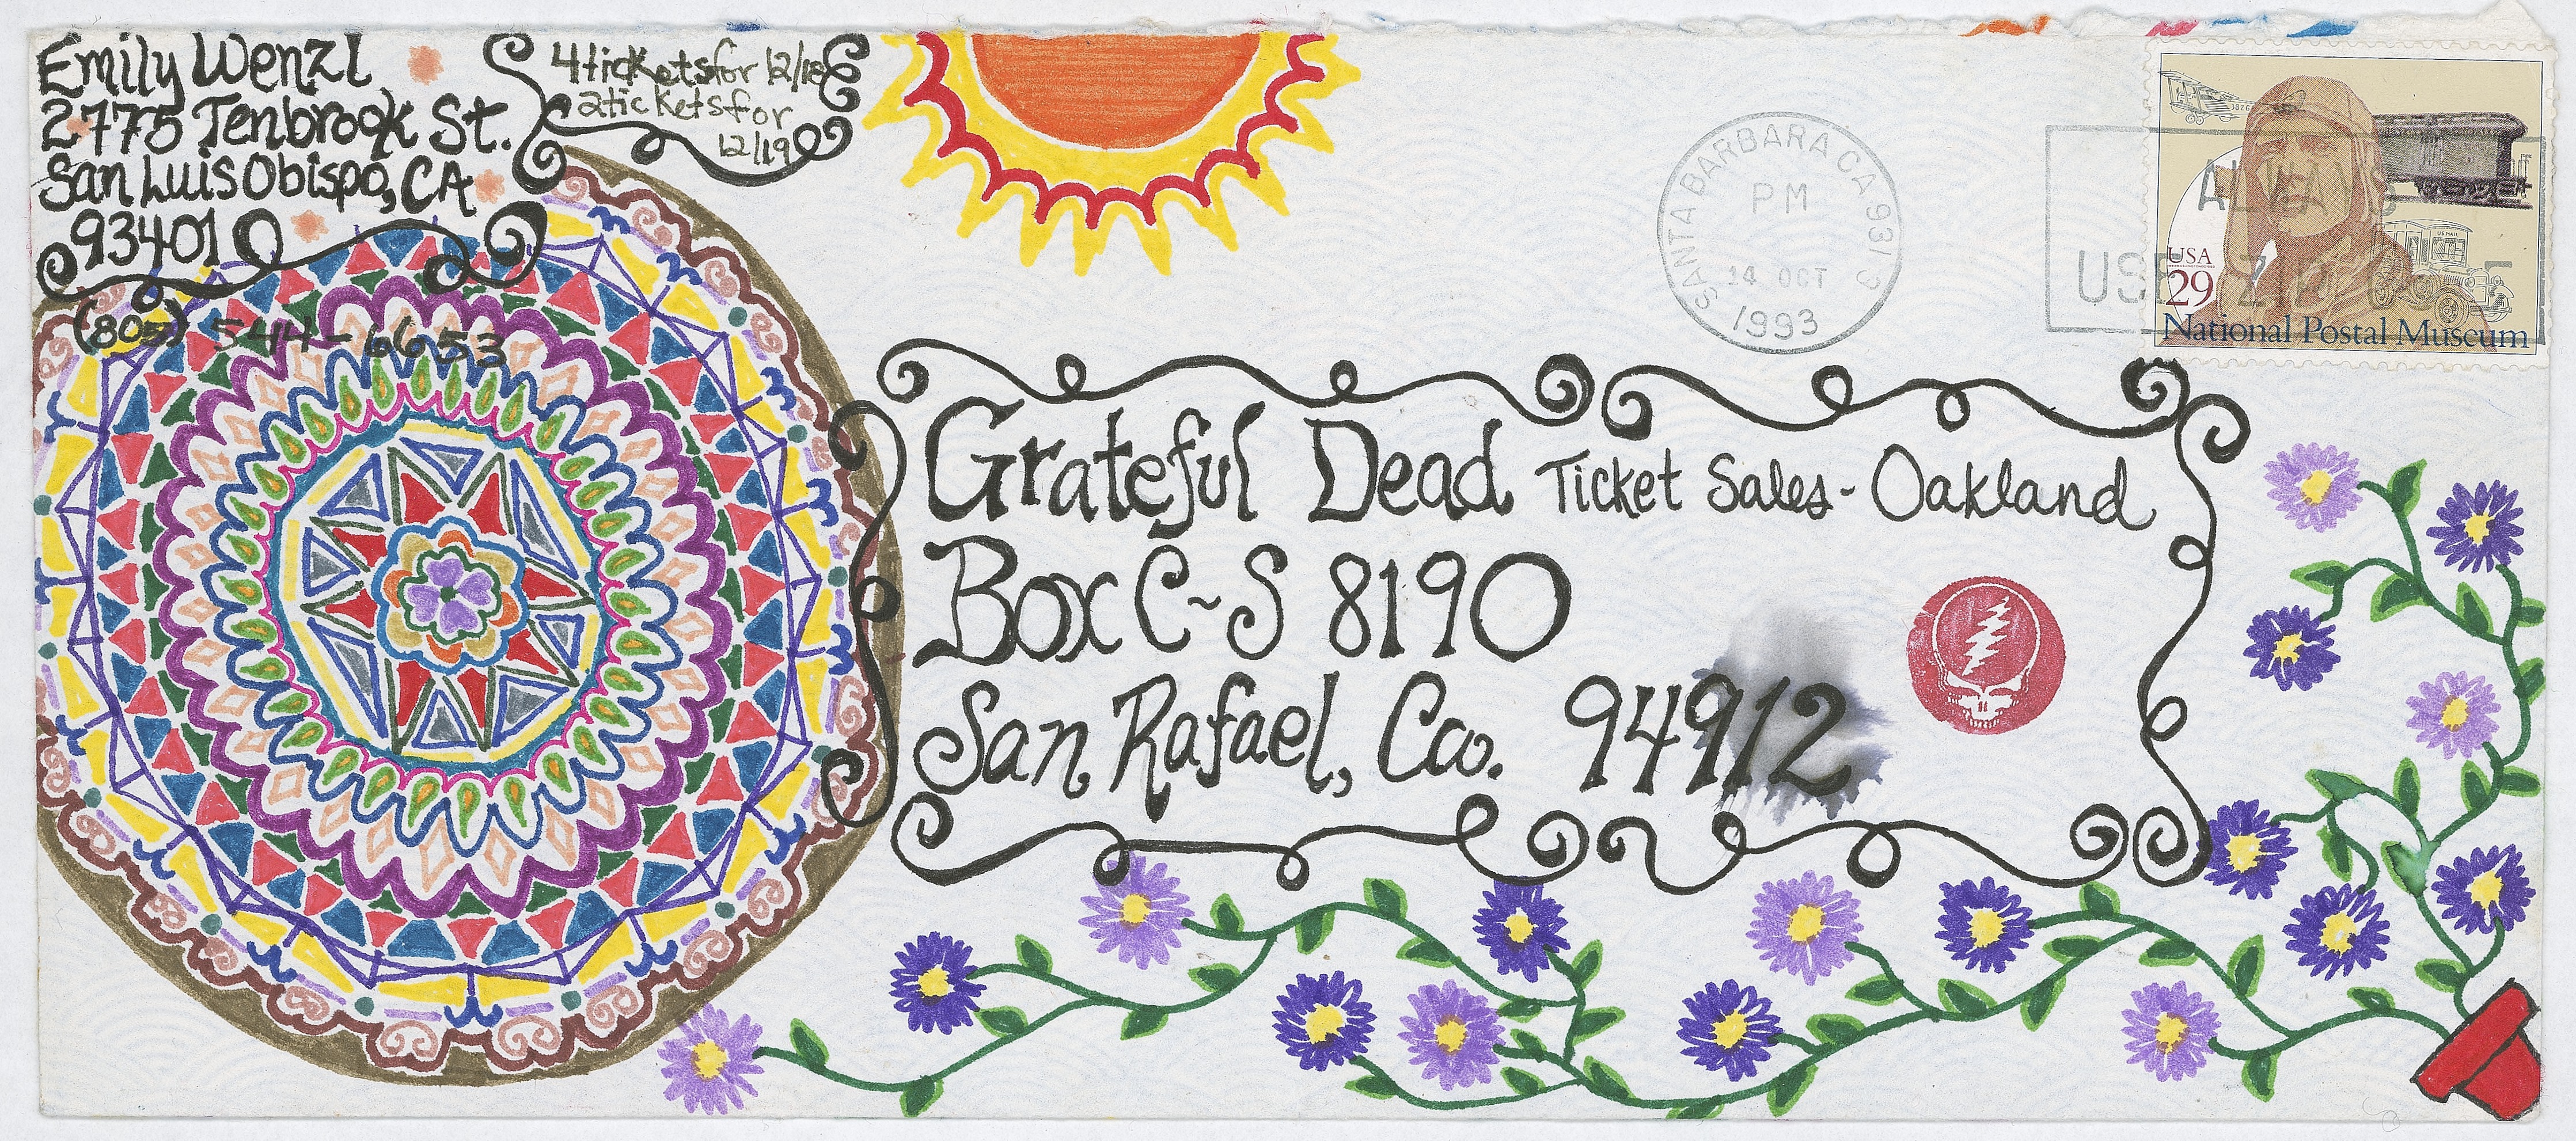 Emily Wenzl
2775 Tenbrook St.
San Luis Obispo, CA
93401
(805) 544-6653
4 tickets for 12/18
2 tickets for
12/19
SANTA BARBARA CA 931
PM
14 OCT
1993
ALWAYS
USE ZIP CODE
USA
29
National Postal Museum
U.S. MAIL
Grateful Dead Ticket Sales - Oakland
Box C-S 8190
San Rafael, Ca. 94912